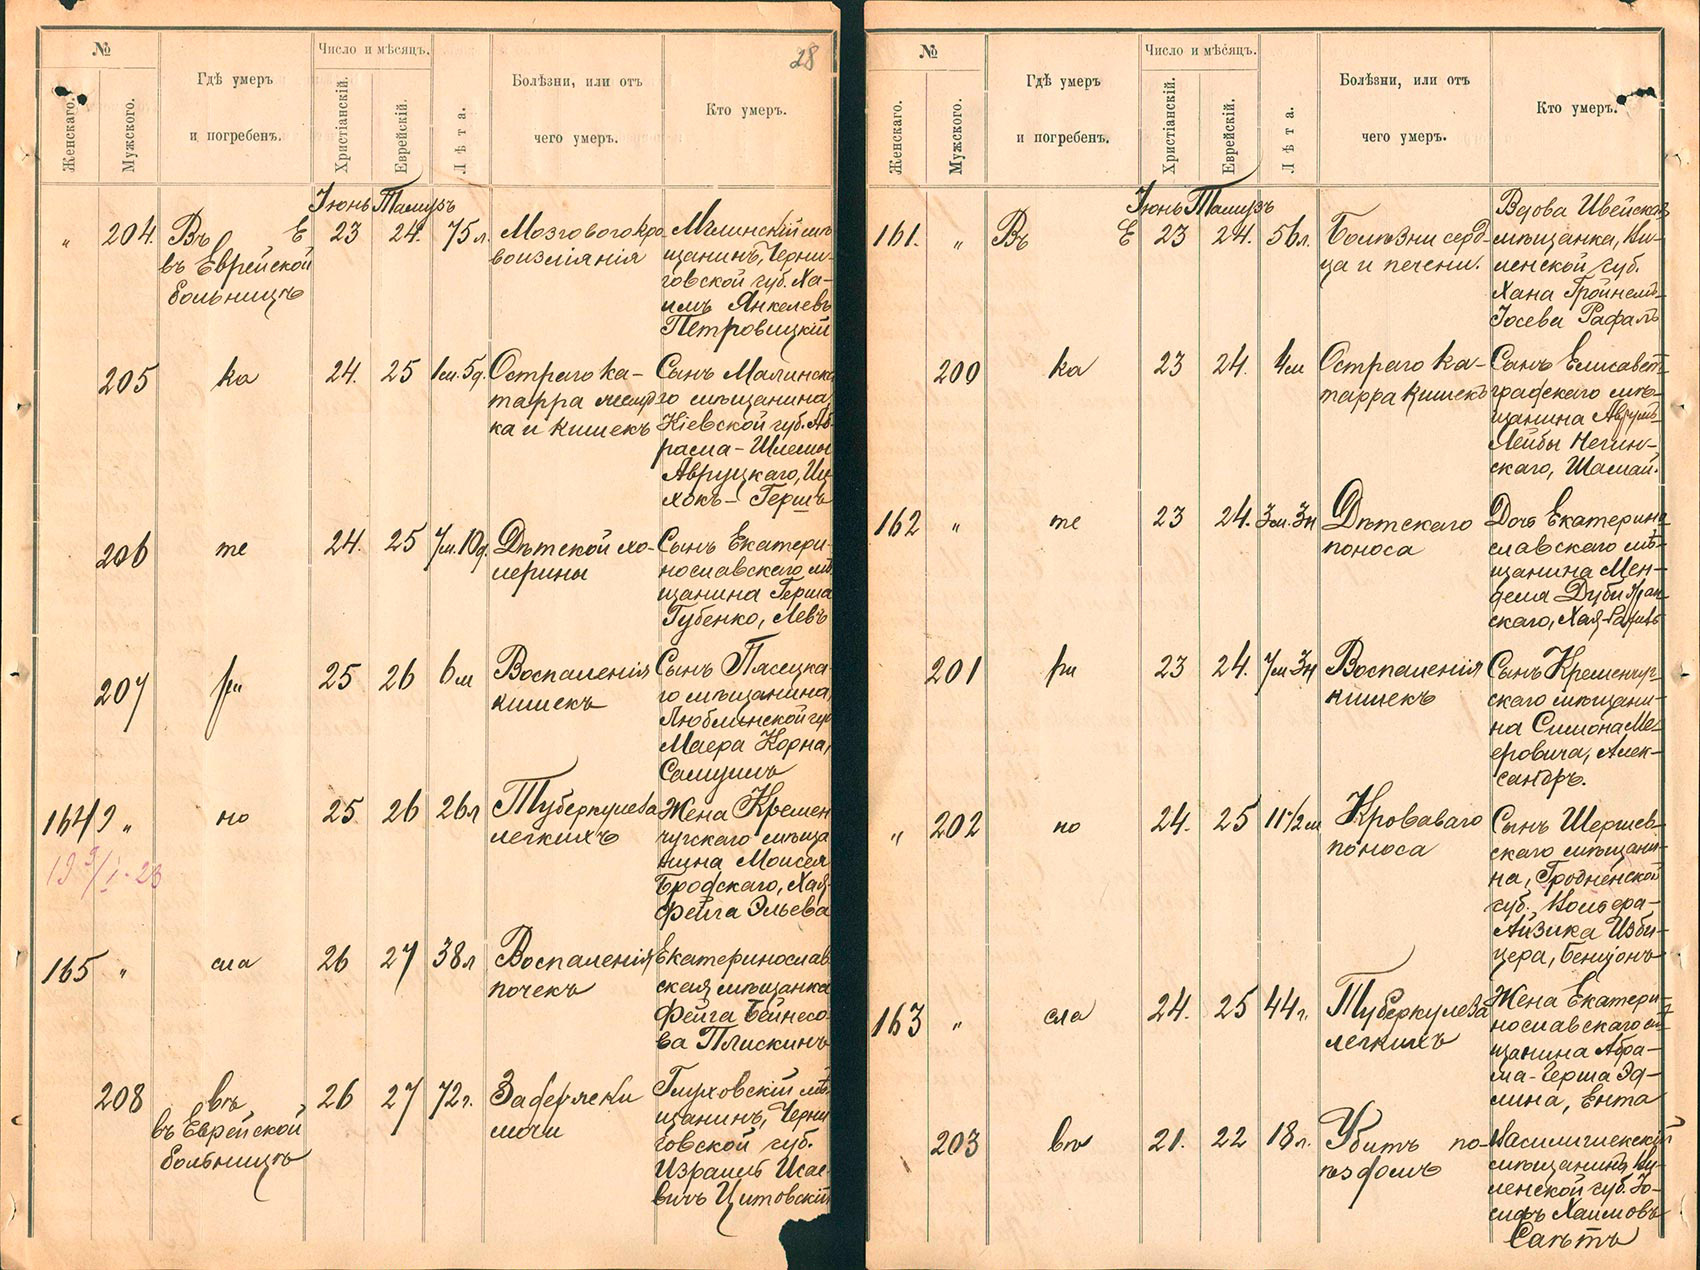 №
Женскаго.
Мужского.
Гдѣ умеръ
и погребенъ.
Число и мѣсяцъ.
Христіанскій.
Еврейскій.
Лѣта.
Болѣзни, или отъ
чего умеръ.
Кто умеръ.
28
Іюнь Тамузъ
„ 204. Въ Е 23 24. 75 л.
въ Еврейской
больницѣ
Мозгового кро
воизліянія
Мглинскій мѣ
щанинъ, Черни-
говской губ. Ха-
имъ Янкелевъ
Петровицкій
205 ка 24. 25 1м. 5д.
Остраго ка-
тарра желуд
ка и кишекъ
Сынъ Малинска
го мѣщанина,
Кіевской губ. Аб
рама-Шлемы
Авруцкаго, Иц
хокъ-Гершъ
206 те 24. 25 7м. 10д.
Дѣтской хо-
лерины
Сынъ Екатери-
нославскаго мѣ
щанина Герша
Губенко, Левъ
207 ри 25 26 6м
Воспаленія
кишекъ
Сынъ Пясецка-
го мѣщанина,
Люблинской губ
Маера Корна,
Самуилъ
164 „ но 25 26 26л
Туберкулеза
легкихъ
Жена Кремен
чугскаго мѣща
нина Моисея
Бродскаго, Хая-
Фейга Эльева
165 „ сла 26 27 38л
Воспаленія
почекъ
Екатеринослав
ская мѣщанка
Фейга Бейнесо-
ва Плискинъ
208 въ 26 27 72г.
въ Еврейской
больницѣ
Задержки
мочи
Глуховскій мѣ
щанинъ, Черни
говской губ.
Израиль Исае-
вичъ Цитовскій
№
Женскаго.
Мужского.
Гдѣ умеръ
и погребенъ.
Число и мѣсяцъ.
Христіанскій.
Еврейскій.
Лѣта.
Болѣзни, или отъ
чего умеръ.
Кто умеръ.
Іюнь Тамузъ
161. „ Въ Е 23 24. 56л.
Болѣзни серд-
ца и печени.
Вдова Ивейская
мѣщанка, Ви-
ленской губ.
Хана Гройнемъ-
Іосева Рафалъ
200 ка 23 24. 4м
Остраго ка-
тарра кишекъ
Сынъ Елисавет-
градскаго мѣ-
щанина Аврумъ-
Лейбы Негин-
скаго, Шамай.
162 „ те 23 24. 3м. 3н
Дѣтскаго
поноса
Дочь Екатерино
славскаго мѣ-
щанина Мен-
деля
скаго, Хая-
201 ри 23 24. 7м 3н
Воспаленія
кишекъ
Сынъ Кременчуг-
скаго мѣщани-
на Симона Ме-
еровича, Алек-
сандръ.
„ 202 но 24. 25 11½м
Кроваваго
поноса
Сынъ Шершев-
скаго мѣщани-
на, Гродненской
губ. Вольфа-
Айзика Изби-
цера, Бенціонъ
163 „ сла 24. 25 44г.
Туберкулеза
легкихъ
Жена Екатери-
нославскаго мѣ-
щанина Абра-
ма-Герша Эд-
лина, Ента
203 въ 21. 22 18л.
Убитъ по-
ѣздомъ
Василишекскій
мѣщанинъ, Ви-
ленской губ. Іо-
сифъ Хаимовъ
Сакътъ